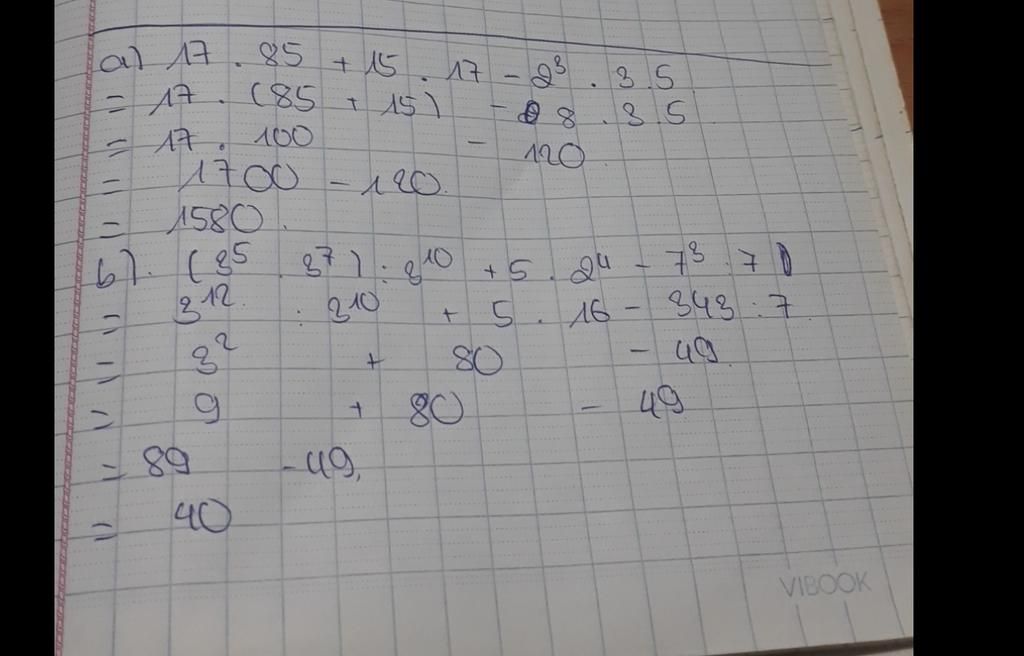 a) 17 . 85 + 15 . 17 - 2³ . 3.5
= 17 . (85 + 15) - 8 . 3 5
= 17 . 100 - 120
= 1700 - 120.
= 1580.
b). (3⁵ . 3⁷) : 3¹⁰ + 5 . 2⁴ - 7³ : 7
= 3¹² : 3¹⁰ + 5 . 16 - 343 : 7
= 3² + 80 - 49.
= 9 + 80 - 49
= 89 - 49.
= 40
VIBOOK